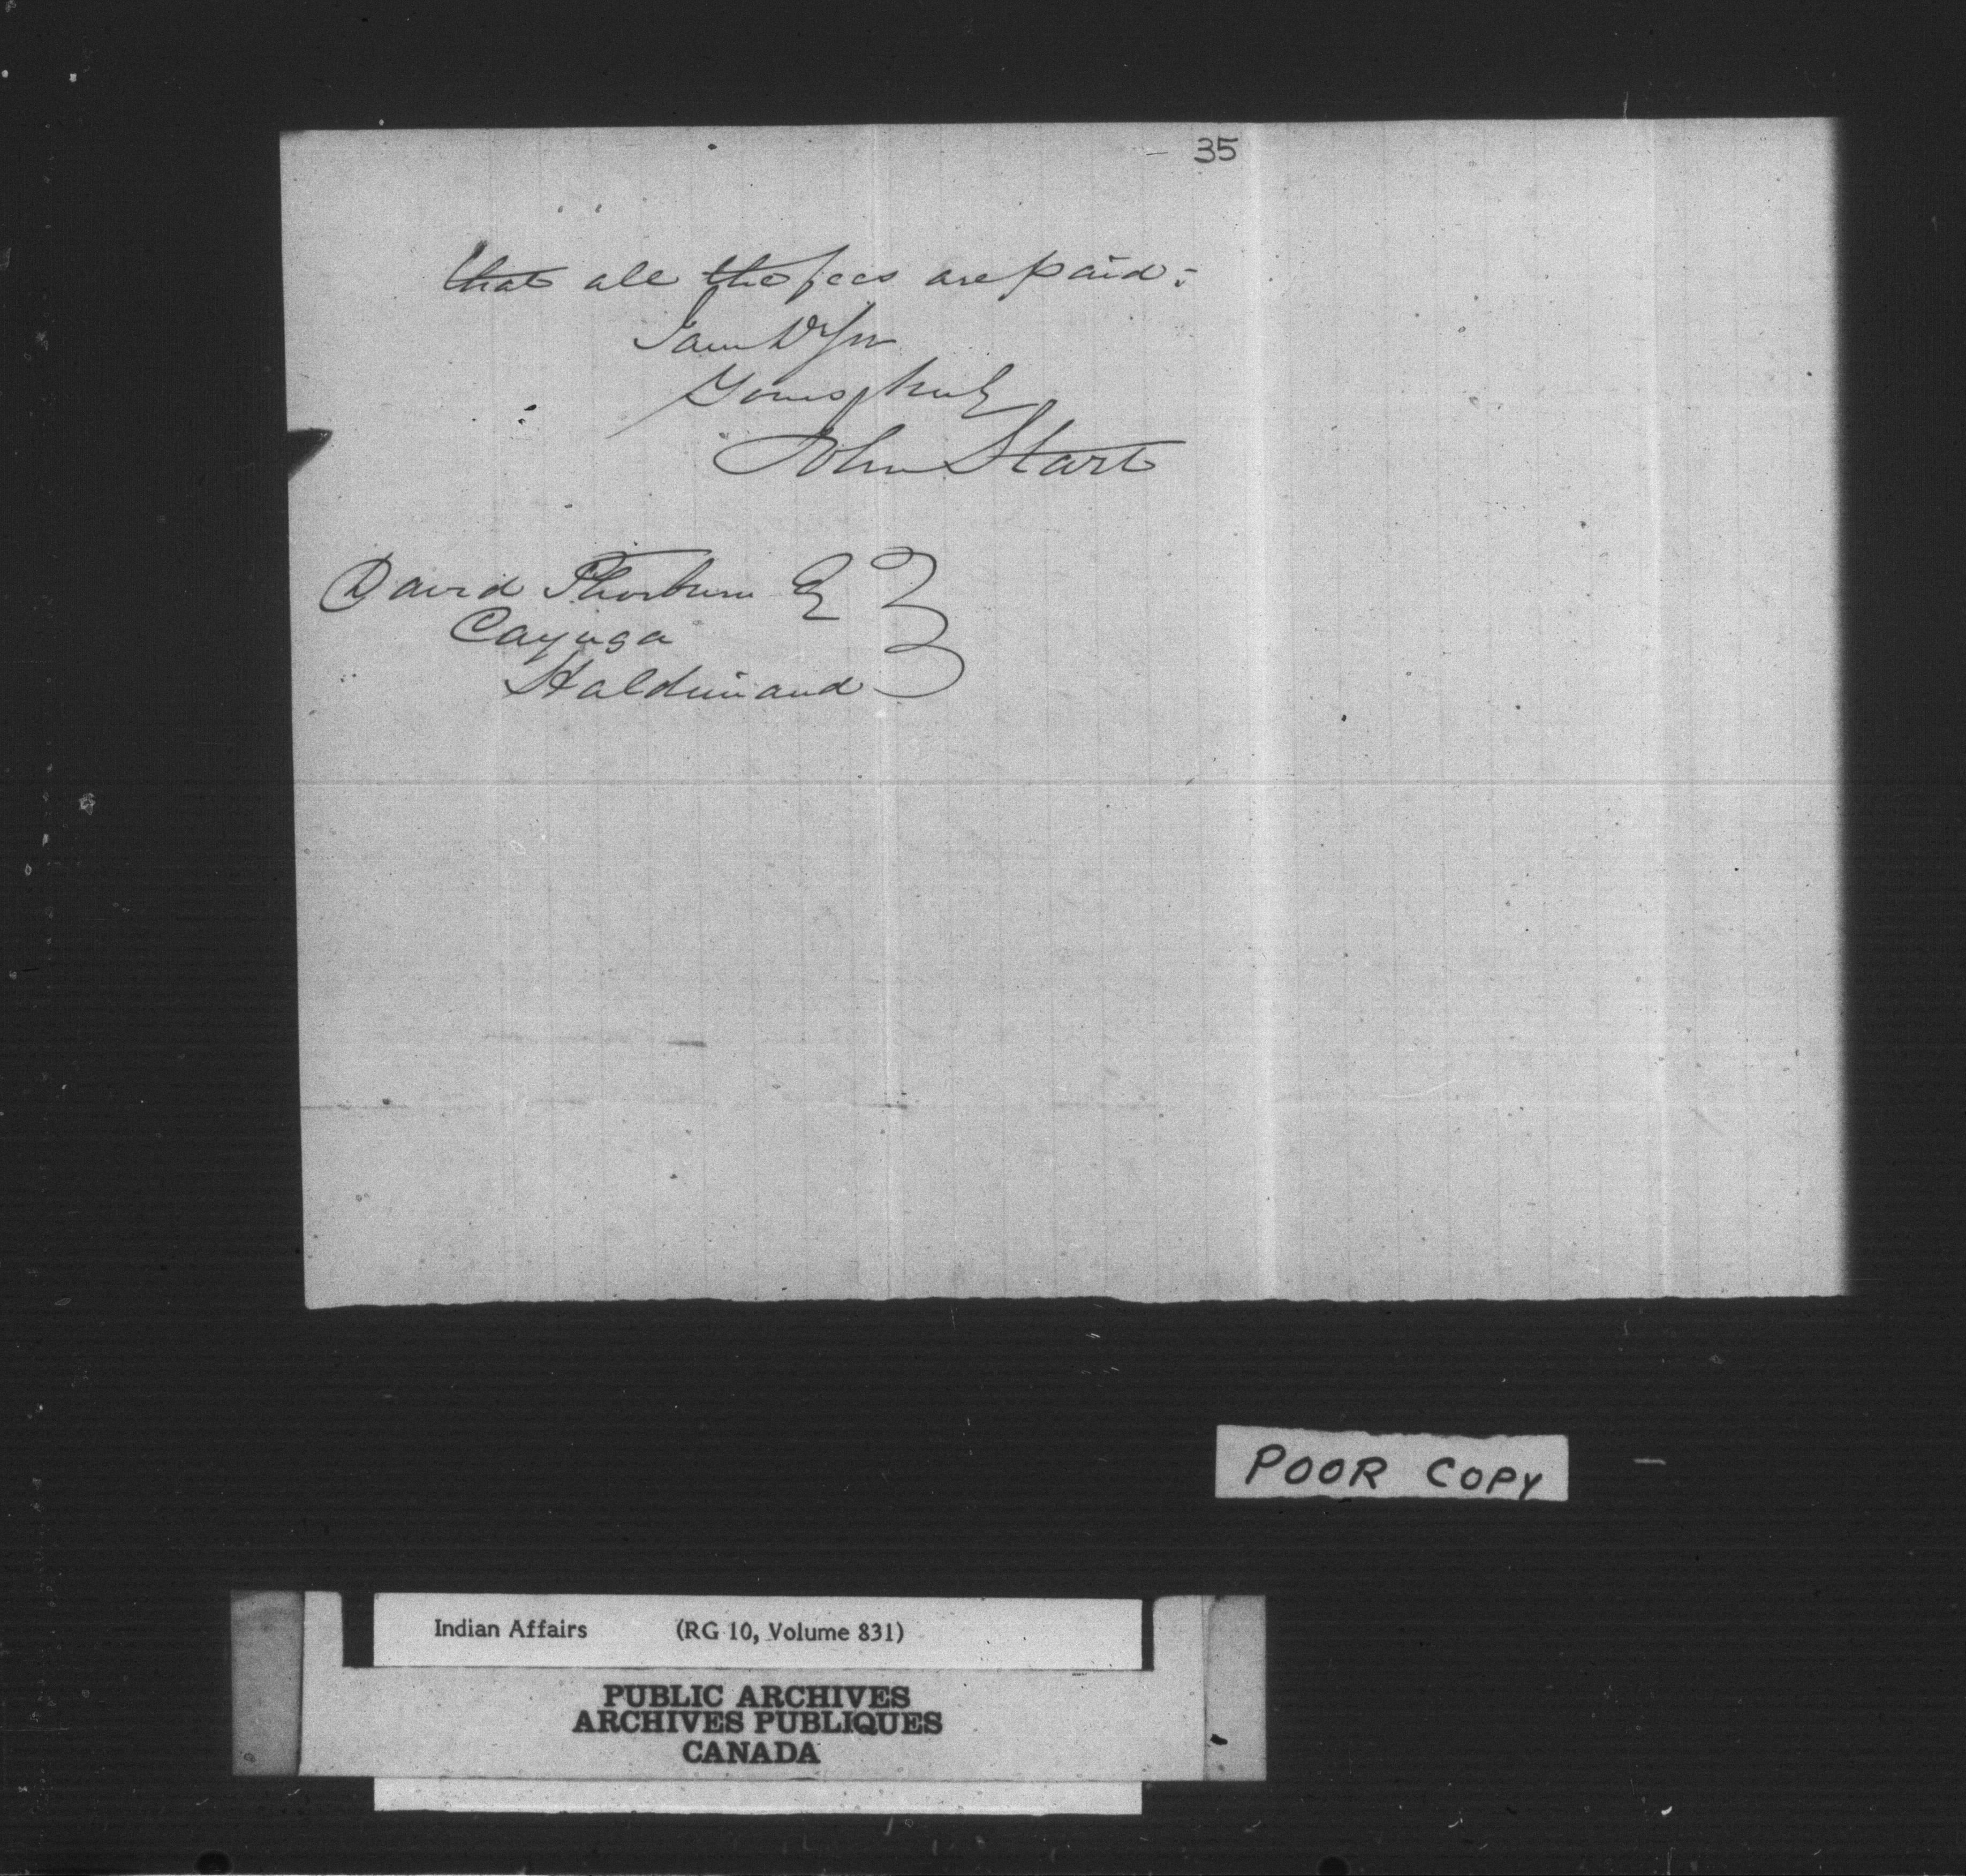 35
that all the fees are paid:
I am Dr Sir
Yours truly
John Start
David Thorburn Eq
Cayuga
Haldimand
POOR COPY
Indian Affairs (RG 10, Volume 831)
PUBLIC ARCHIVES
ARCHIVES PUBLIQUES
CANADA